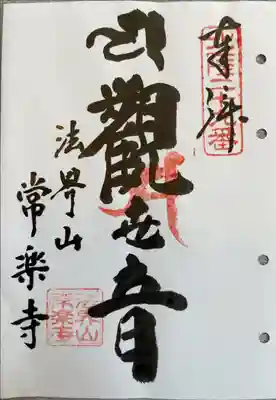 奉拝
觀世音
法界山
常楽寺